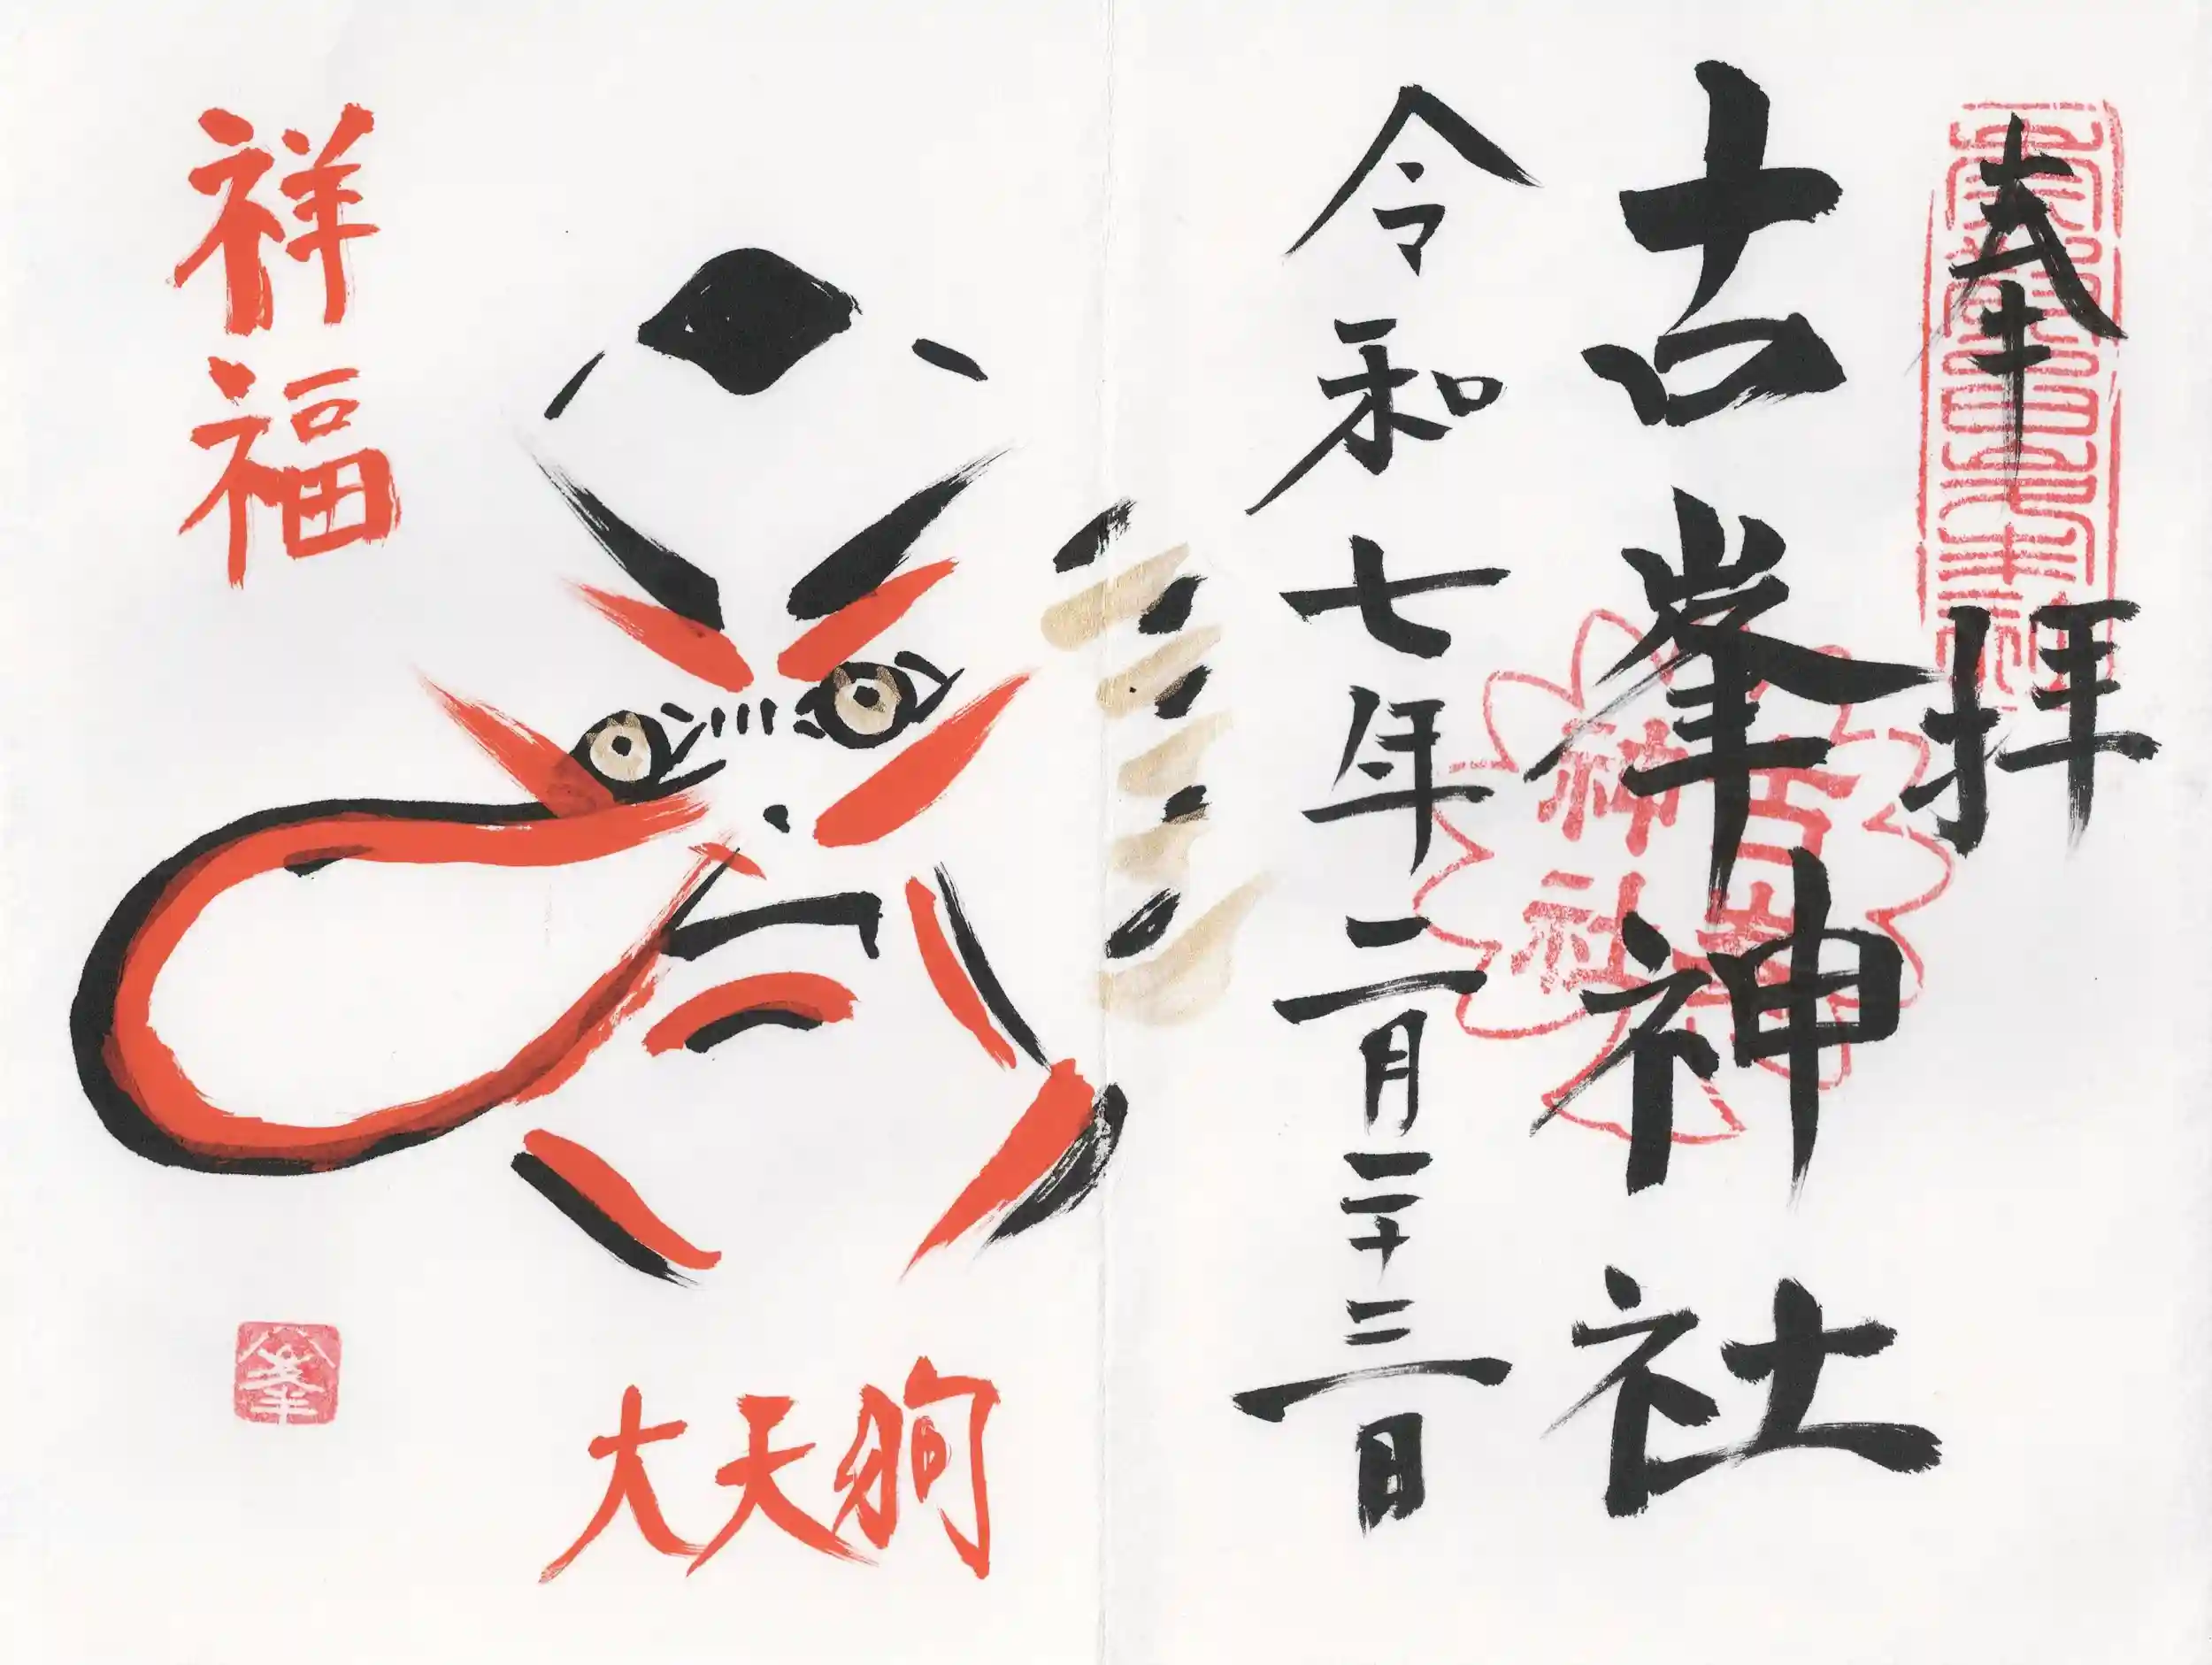 奉拝
古峯
神社
古峯神社
令和七年二月二十三日
祥福
大天狗
峯